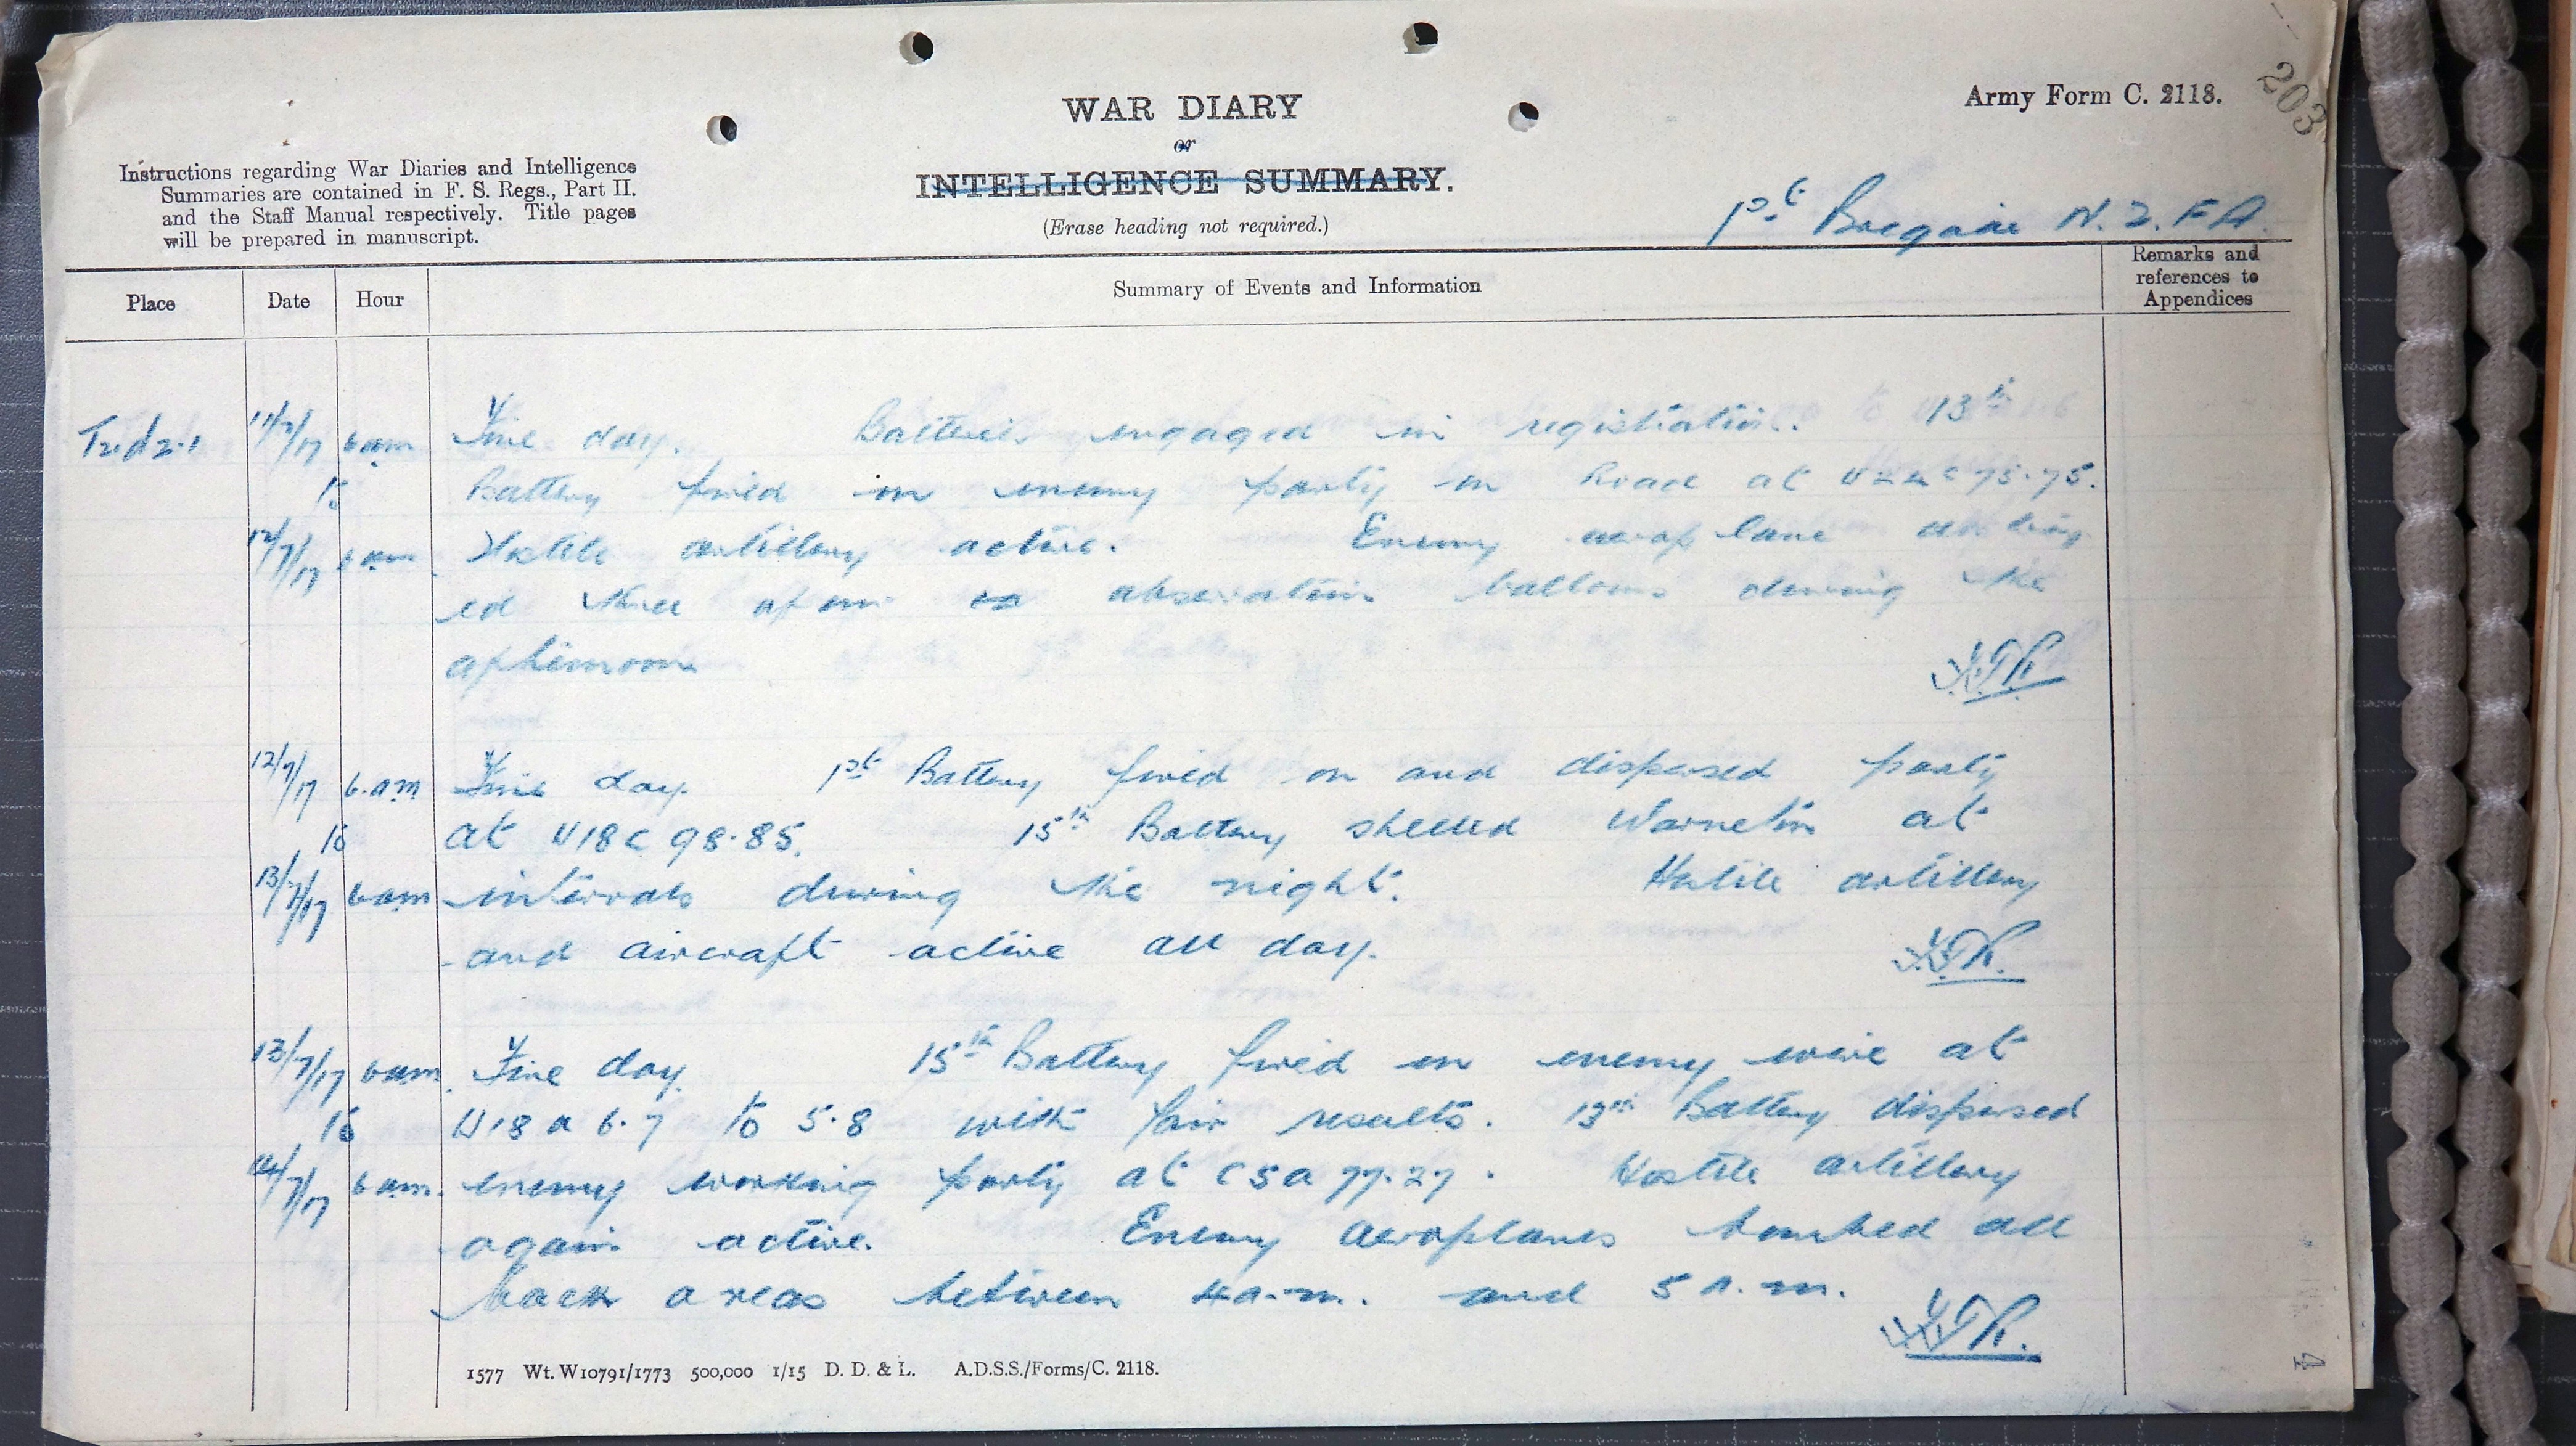 203
Army Form C. 2118.
WAR DIARY
or
INTELLIGENCE SUMMARY.
(Erase heading not required.)
Instructions regarding War Diaries and Intelligence
Summaries are contained in F. S. Regs., Part II.
and the Staff Manual respectively. Title pages
will be prepared in manuscript.
1st Brigade N.Z.F.A.
Place Date Hour Summary of Events and Information Remarks and references to Appendices
T2.d2.1 11/7/17 6am Fine day. Batteries engaged in registration. 13th
to Battery fired on enemy party on Road at U22c75.75.
12/7/17 6am Hostile artillery active. Enemy aeroplane
ed three of our observation balloons during the
afternoon
12/7/17 6.am Fine day 1st Battery fired on and dispersed party
to at U18c98.85. 15th Battery shelled Warneton at
13/7/17 6am intervals during the night. Hostile artillery
and aircraft active all day.
13/7/17 6am. Fine day. 15th Battery fired on enemy wire at
to U18a6.7 to 5.8 with fair results. 13th Battery dispersed
14/7/17 6am. enemy working party at C5a77.27. Hostile artillery
again active. Enemy aeroplanes bombed all
back areas between 4a.m. and 5a.m.
1577 Wt. W10791/1773 500,000 1/15 D. D. & L. A.D.S.S./Forms/C. 2118.